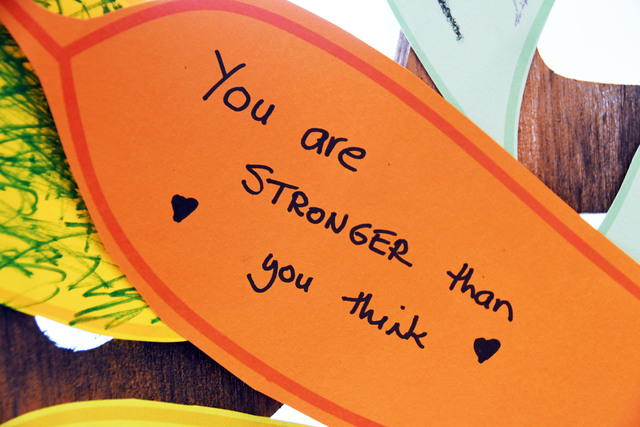 You are
STRONGER than
you think